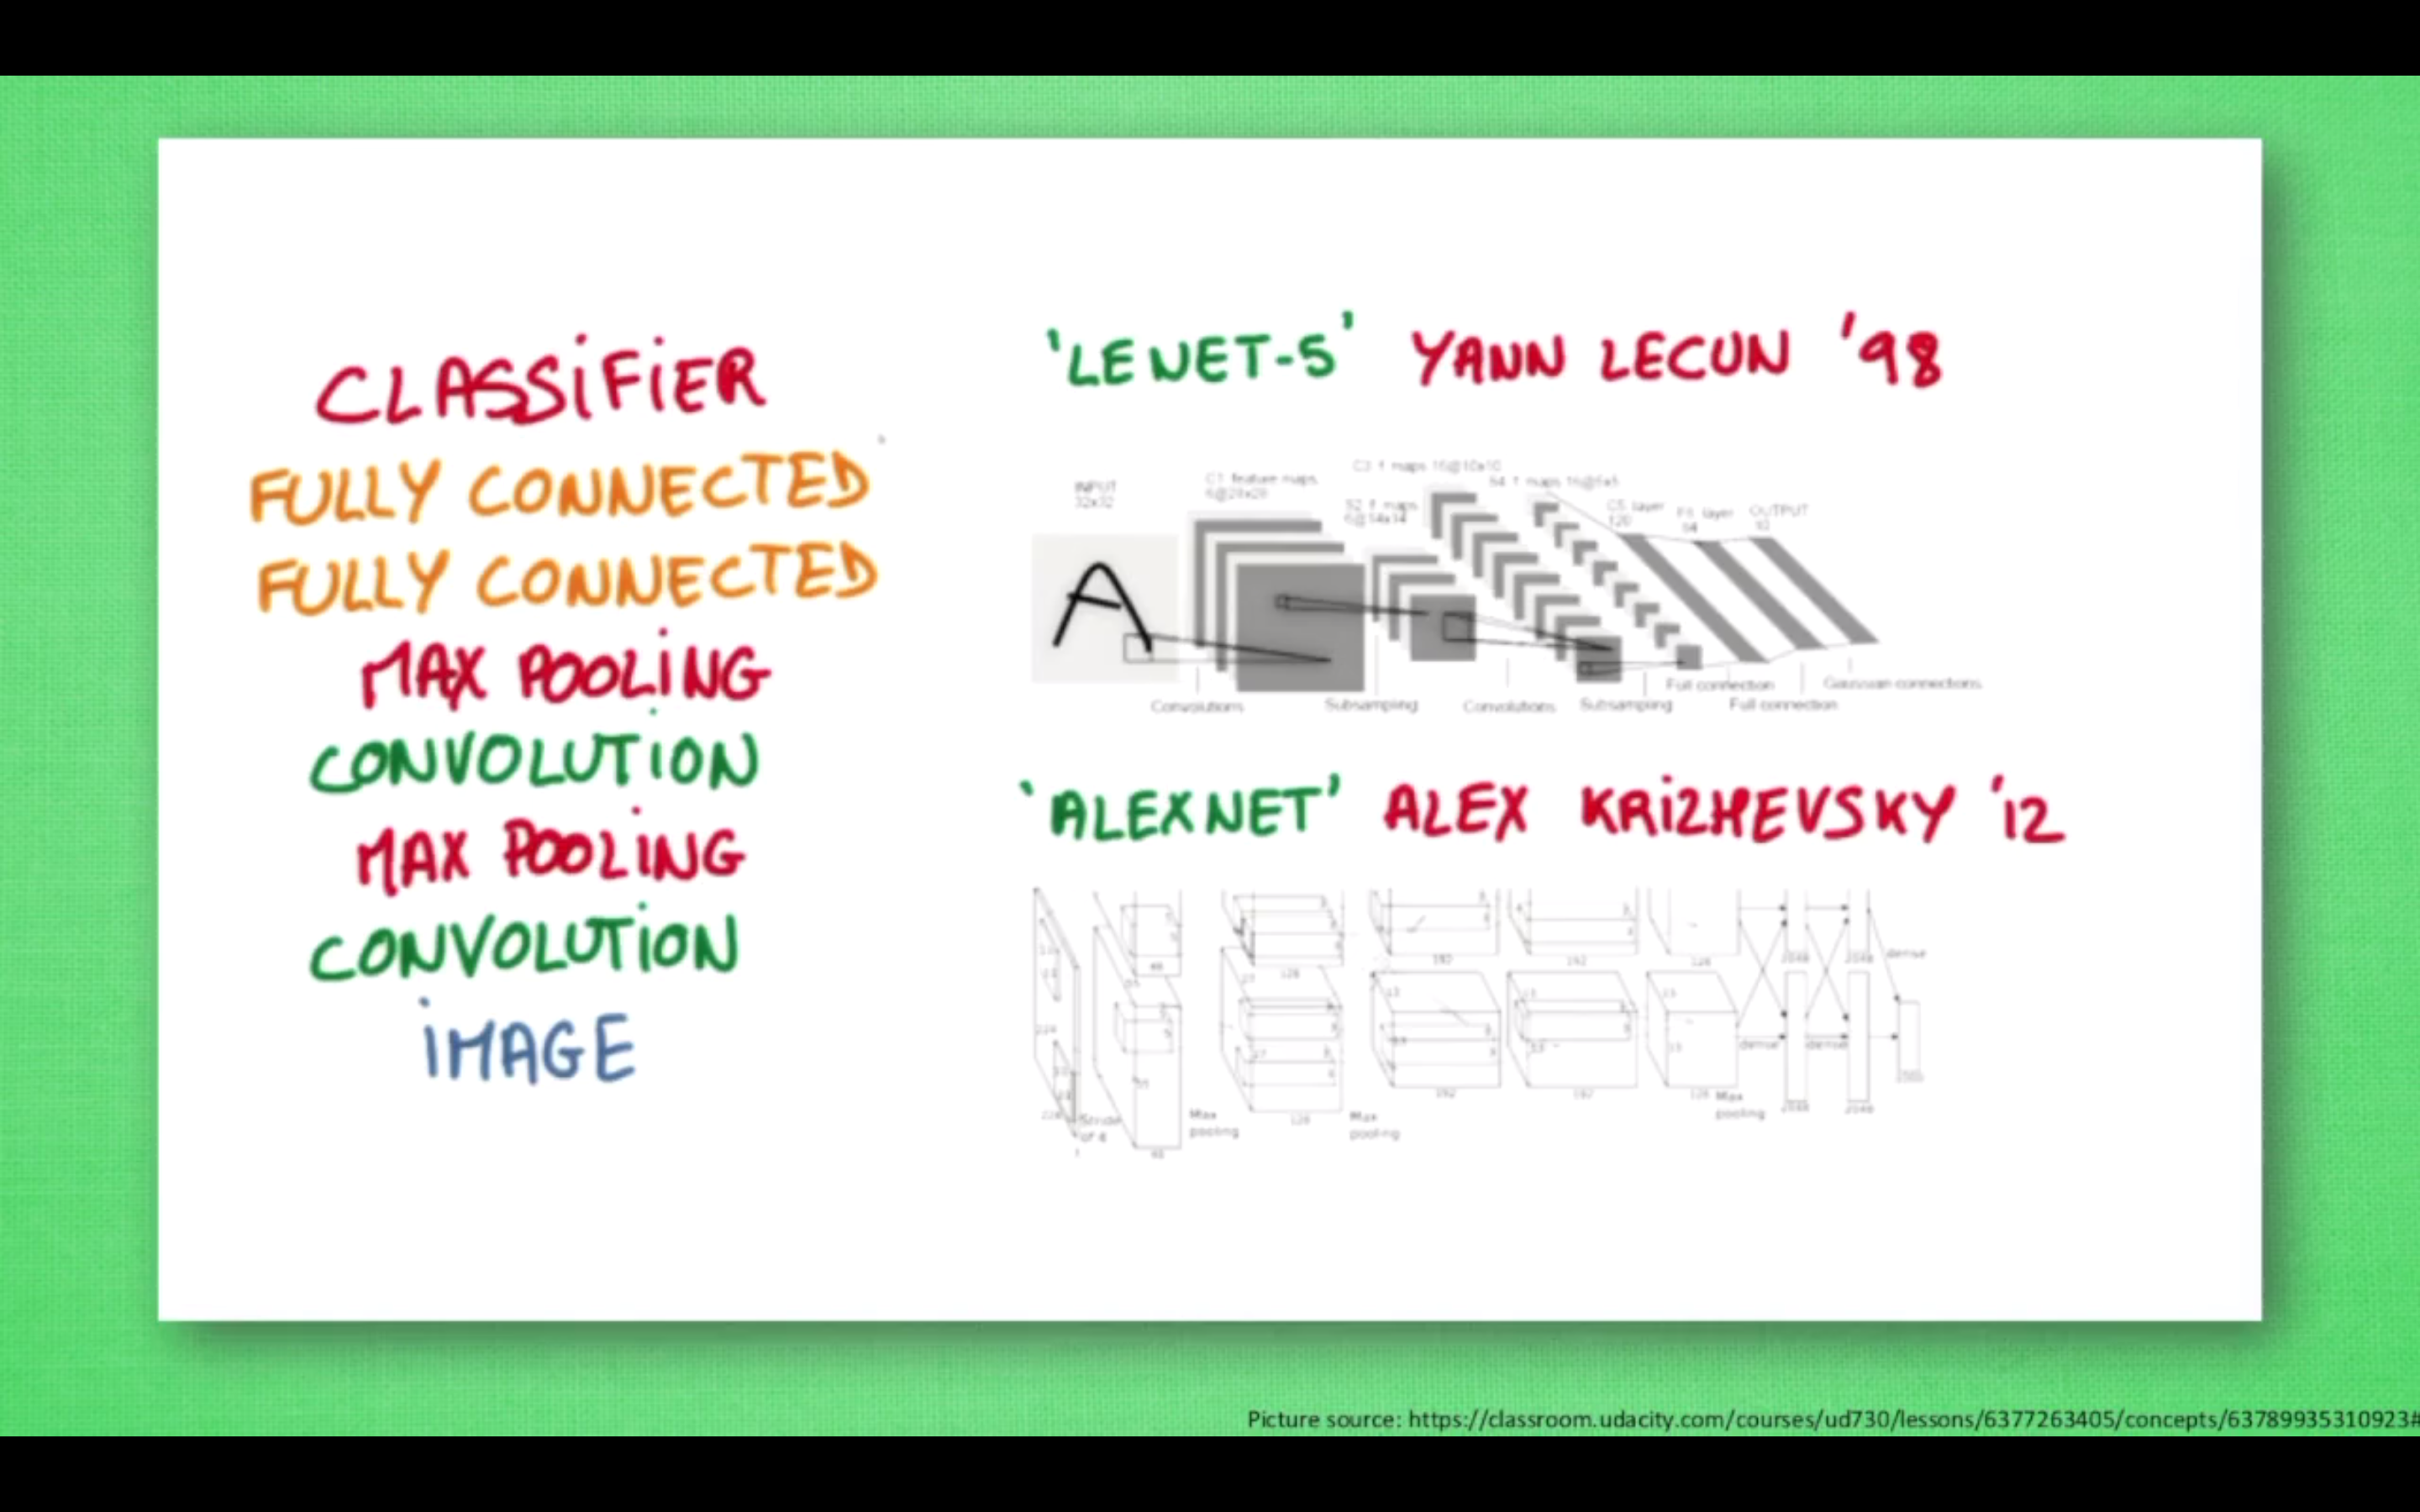 CLASSIFIER
FULLY CONNECTED
FULLY CONNECTED
MAX POOLING
CONVOLUTION
MAX POOLING
CONVOLUTION
IMAGE
'LENET-5' YANN LECUN '98
INPUT
32x32
C1: feature maps
6@28x28
C3: f. maps 16@10x10
S2: f. maps
6@14x14
S4: f. maps 16@5x5
C5: layer
120
F6: layer
84
OUTPUT
10
Convolutions
Subsampling
Convolutions
Subsampling
Full connection
Full connection
Gaussian connections
'ALEXNET' ALEX KRIZHEVSKY '12
192
192
128
2048
2048
dense
128
224
55
dense
dense
192
192
128
Max
pooling
2048
2048
224
Stride
of 4
48
Max
pooling
128
Max
pooling
Picture source: https://classroom.udacity.com/courses/ud730/lessons/6377263405/concepts/63789935310923#